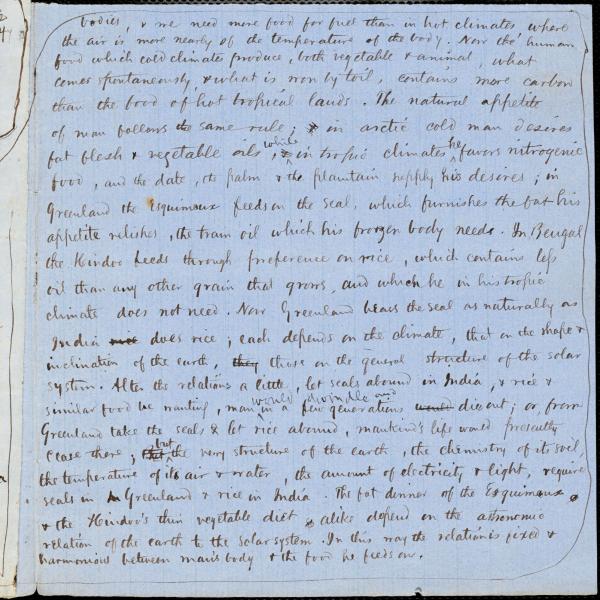 bodies, & we need more food for fuel than in hot climates, where
the air is more nearly of the temperature of the body. Now the human
food which cold climates produce, both vegetable & animal, what
comes spontaneously, & what is won by toil, contains more carbon
than the food of hot tropical lands. The natural appetite
of man follows the same rule; in arctic cold man desires
fat flesh & vegetable oils, while in tropic climates he favors nitrogenic
food, and the date, the palm & the plaintain supply his desires; in
Greenland the Esquimaux feeds on the seal, which furnishes the fat his
appetite relishes, the train oil which his frozen body needs. In Bengal
the Hindoo feeds through preference on rice, which contains less
oil than any other grain that grows, and which he in his tropic
climate does not need. Now Greenland bears the seal as naturally as
India rice does rice; each depends on the climate, that on the shape &
inclination of the earth, they those on the general structure of the solar
system. Alter the relations a little, let seals abound in India, & rice &
similar food be wanting, man in a few generations would dwindle and would die out; or, from
Greenland take the seals & let rice abound, mankind's life would presently
cease there; but the very structure of the earth, the chemistry of its soil,
the temperature of its air & water, the amount of electricity & light, require
seals in Greenland & rice in India. The fat dinner of the Esquimaux
& the Hindoo's thin vegetable diet alike depend on the astronomic
relation of the earth to the solar system. In this way the relation is fixed &
harmonious between man's body & the food he feeds on.